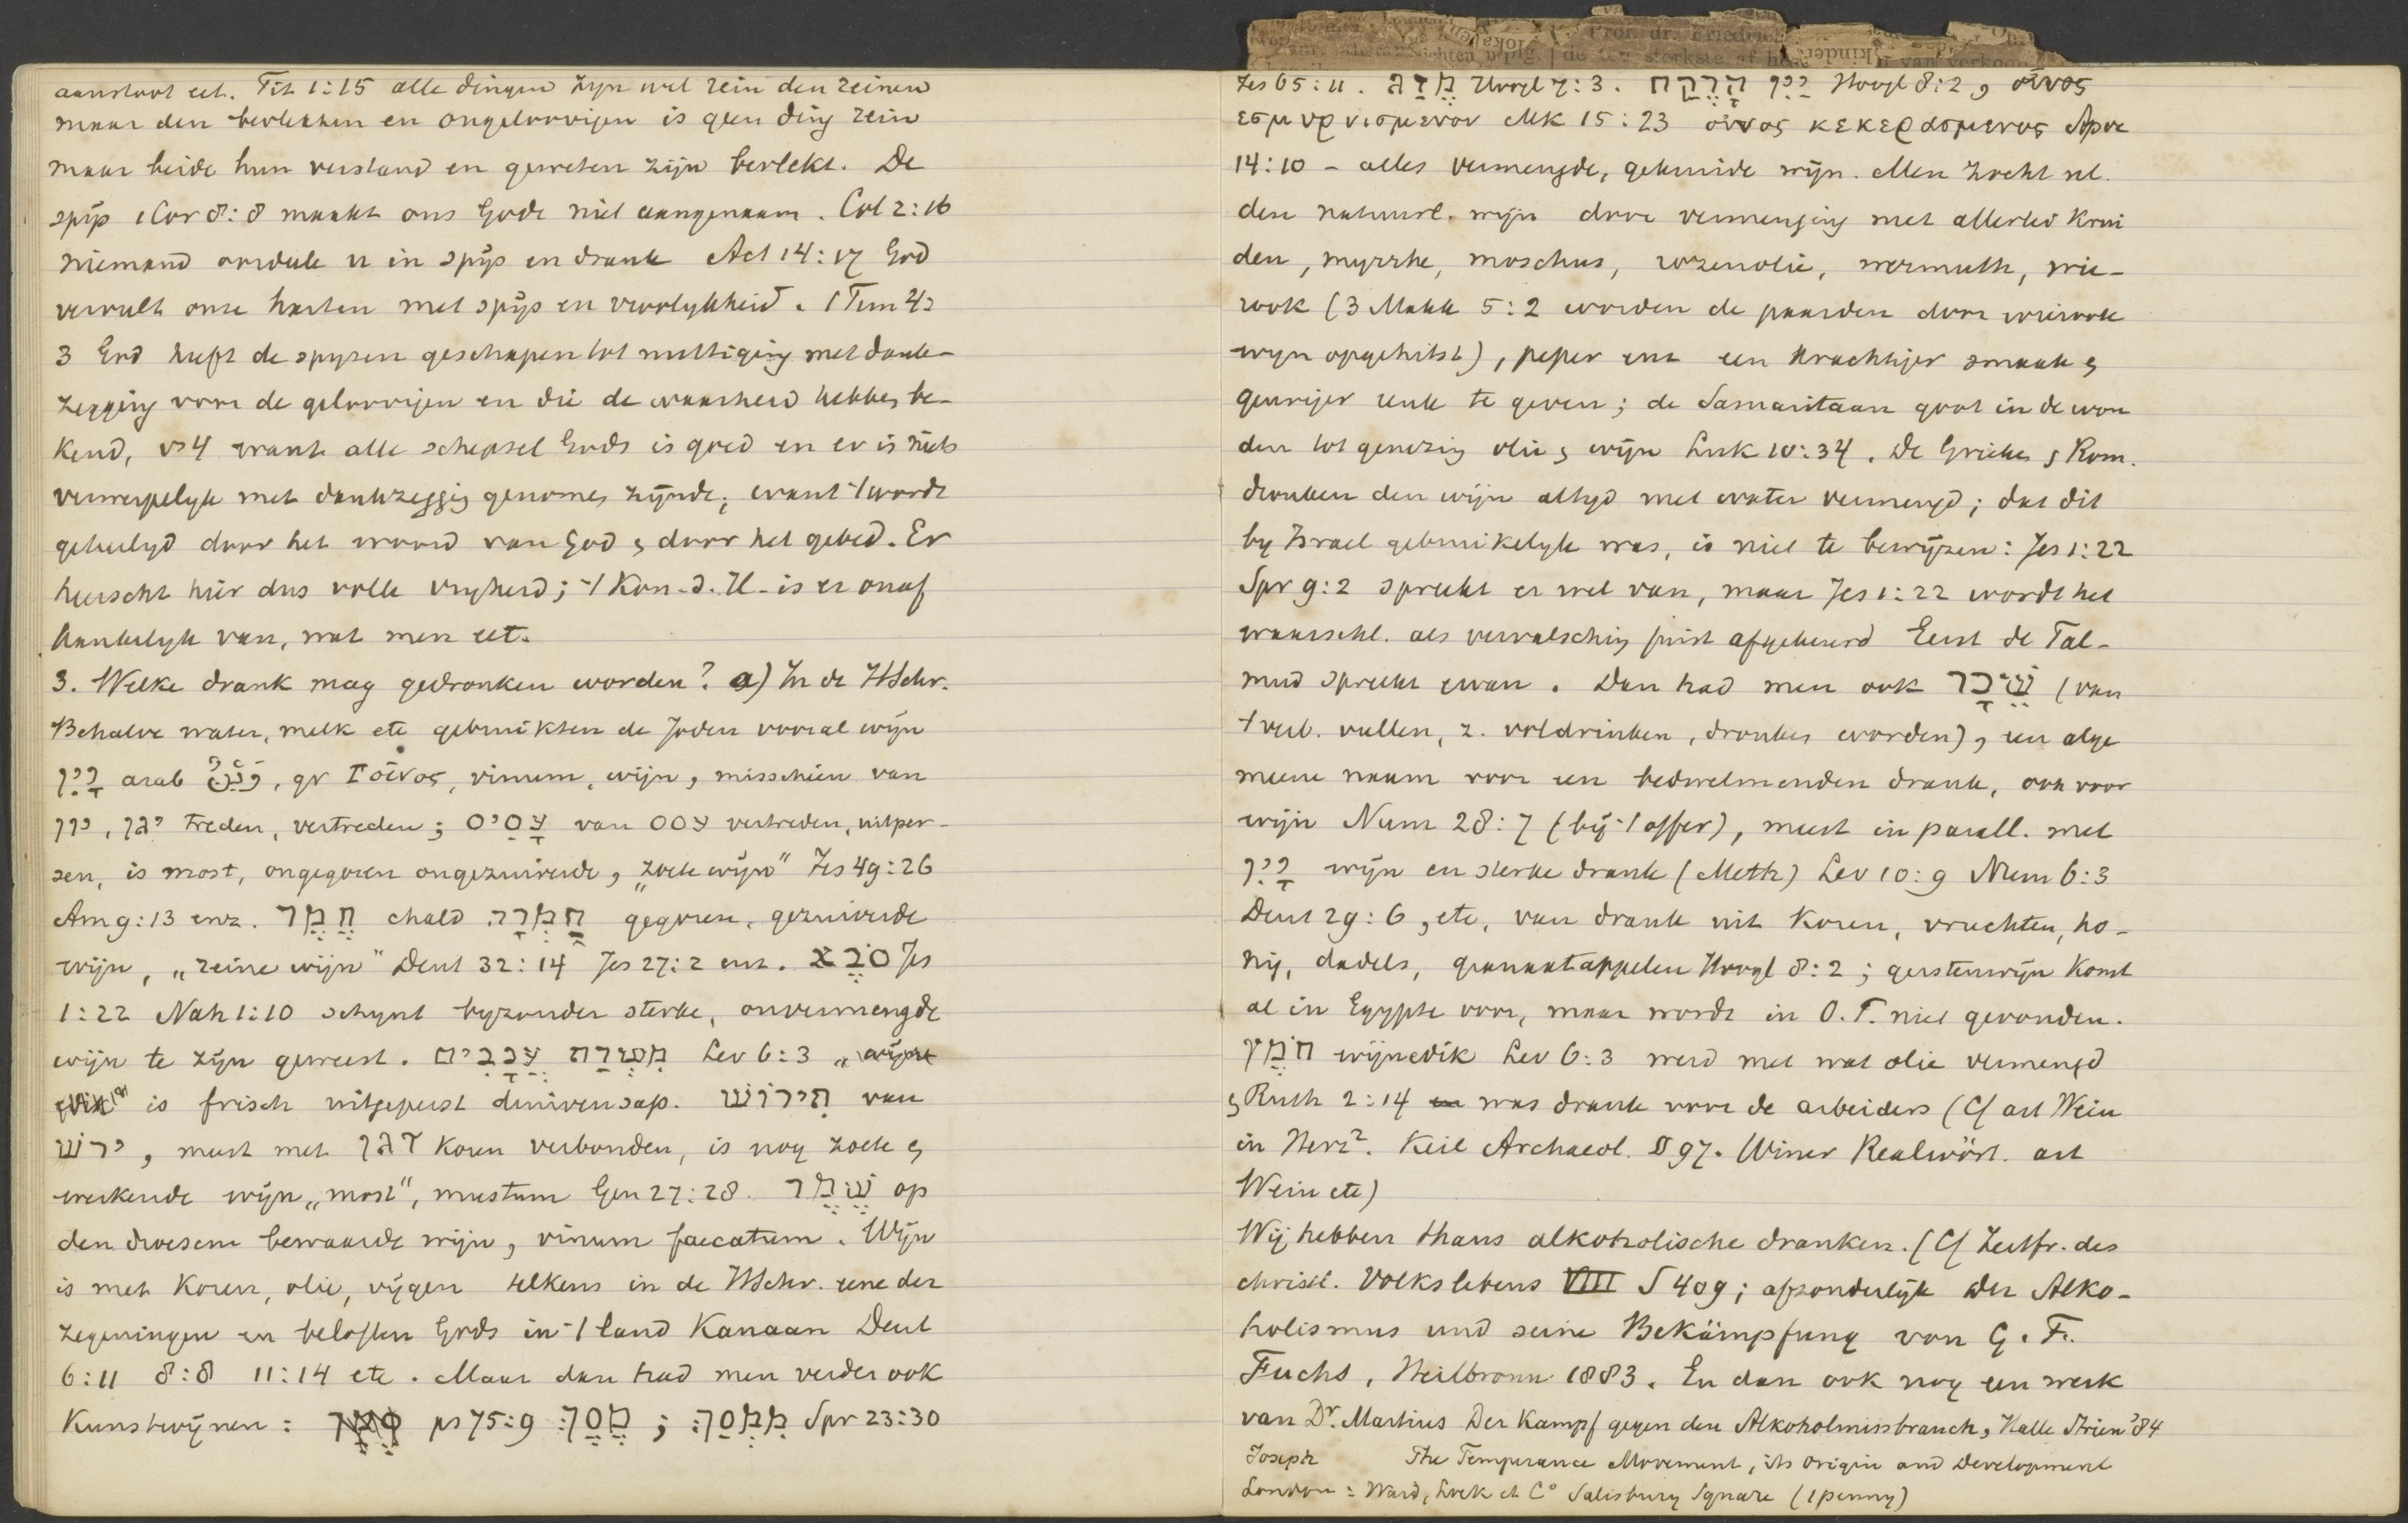 aanstoot eet. Tit 1:15 alle dingen zyn wel rein den reinen
maar den bevlekten en ongeloovigen is geen ding rein
maar beide hun verstand en geweten zijn bevlekt. De
spijs 1Cor 8:8 maakt ons Gode niet aangenaam. Col 2:16
niemand oordeele u in spijs en drank Act 14:17 God
vervult onze harten met spijs en vroolykheid. 1Tim 4:
3 God heeft de spyzen geschapen tot nuttiging met dank-
zegging voor de geloovigen en die de waarheid hebben be-
kend, vs4 want alle schepsel Gods is goed en er is niets
verwerpelyk met dankzegging genomen zijnde; want 't wordt
geheiligd door het woord van God en door het gebed. Er
heerscht hier dus volle vryheid; 't Kon. d. H. is er onaf
hankelyk van, wat men eet.
3. Welke drank mag gedronken worden? a) In de HSchr.
Behalve water, melk etc gebruikten de Joden vooral wijn
יַיִן arab وَيْنٌ, gr Ϝοἶνος, vinum, wijn, misschien van
יון, יגן treden, vertreden; עָסִיס van עסס vertreden, uitper-
sen, is most, ongegoren ongezuiverde, „zoete wijn" Jes 49:26
Am 9:13 enz. חֶמֶר chald חַמְרָה gegoren, gezuiverde
wijn, „reine wijn" Deut 32:14 Jes 27:2 enz. סֹבֶא Jes
1:22 Nah 1:10 schynt byzonder sterke, onvermengde
wijn te zijn geweest. מִשְׁרַת עֲנָבִים Lev 6:3 „wijn
is frisch uitgeperst druivensap. תִּירוֹשׁ van
ירשׁ, meest met דגן koren verbonden, is nog zoete en
werkende wijn „most", mustum Gen 27:28. שֶׁמֶר op
den droesem bewaarde wijn, vinum faecatum. Wijn
is met koren, olie, vijgen telkens in de HSchr. eene der
zegeningen en beloften Gods in 't land Kanaan Deut
6:11 8:8 11:14 etc. Maar dan had men verder ook
Kunstwijnen: ps 75:9 מֶסֶךְ ; מִמְסָךְ Spr 23:30
Jes 65:11. מֶזֶג Hoogl 7:3. יַיִן הָרֶקַח Hoogl 8:2, οἶνος
εσμυρνισμενον Mk 15:23 οἶνος κεκερασμενος Apoc
14:10 – alles vermengde, gekruide wijn. Men zocht nl.
den natuurl. wijn door vermenging met allerlei krui
den, myrrhe, moschus, rozenolie, wermuth, wie-
rook (3 Makk 5:2 worden de paarden door wierook
wyn opgehitst), peper enz een krachtiger smaak en
geuriger reuk te geven; de Samaritaan goot in de won
den tot genezing olie en wijn Luk 10:34. De Grieken en Rom.
dronken den wijn altyd met water vermengd; dat dit
by Israel gebruikelyk was, is niet te bewijzen: Jes 1:22
Spr 9:2 spreekt er wel van, maar Jes 1:22 wordt het
waarschl. als vervalsching juist afgekeurd Eerst de Tal-
mud spreekt ervan. Dan had men ook שֵׁכָר (van
't verb. vullen, z. voldrinken, dronken worden), een alge
meene naam voor een bedwelmenden drank, ook voor
wijn Num 28:7 (bij 't offer), meest in parall. met
יַיִן wijn en sterke drank (Meth) Lev 10:9 Num 6:3
Deut 29:6, etc, van drank uit koren, vruchten, ho-
nig, dadels, granaatappelen Hoogl 8:2; gerstenwijn komt
al in Egypte voor, maar wordt in O.T. niet gevonden.
חֹמֶץ wijnedik Lev 6:3 werd met wat olie vermengd
en Ruth 2:14 was drank voor de arbeiders (Cf art Wein
in Herz². Keil Archaeol. § 97. Winer Realwört. art
Wein etc)
Wij hebben thans alkoholische dranken. (Cf Zeitfr. des
christl. Volkslebens VIII S 409; afzonderlijk Der Alko-
holismus und seine Bekämpfung von G. Fr.
Fuchs, Heilbronn 1883. En dan ook nog een werk
van Dr. Martius Der Kampf gegen den Alkoholmissbrauch, Halle Strien '84
Joseph The Temperance Movement, its origin and Development
London: Ward, Lock et Co Salisbury Square (1 penny)